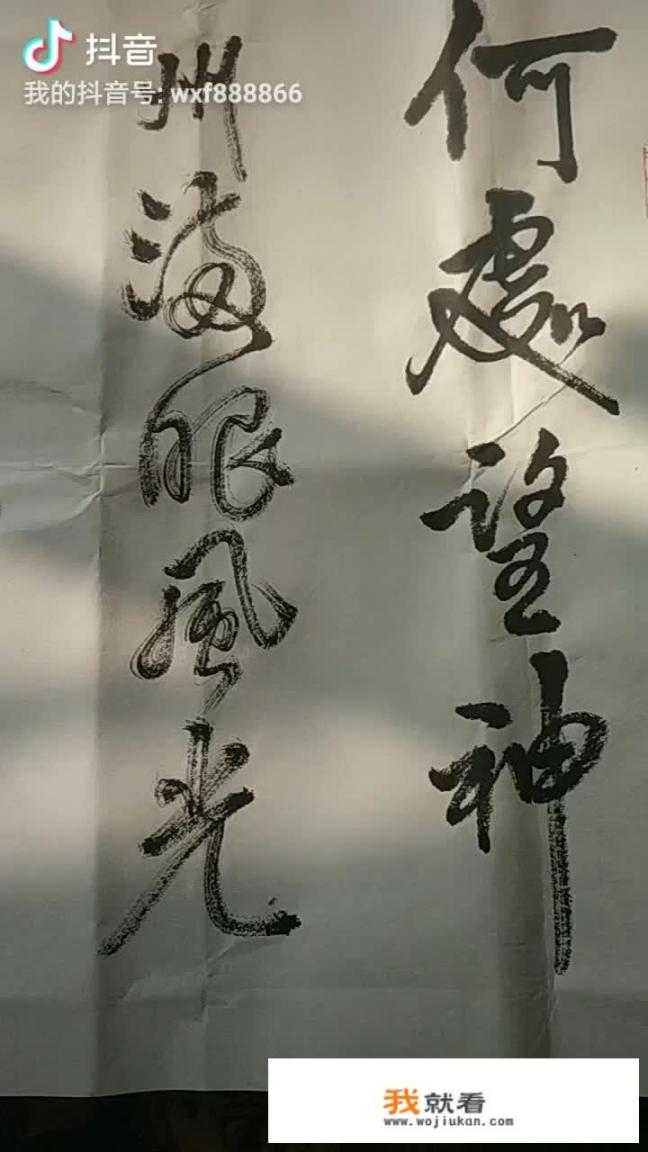 抖音
我的抖音号: wxf888866
何處望神
州滿眼風光
我就看
www.wojiukan.com